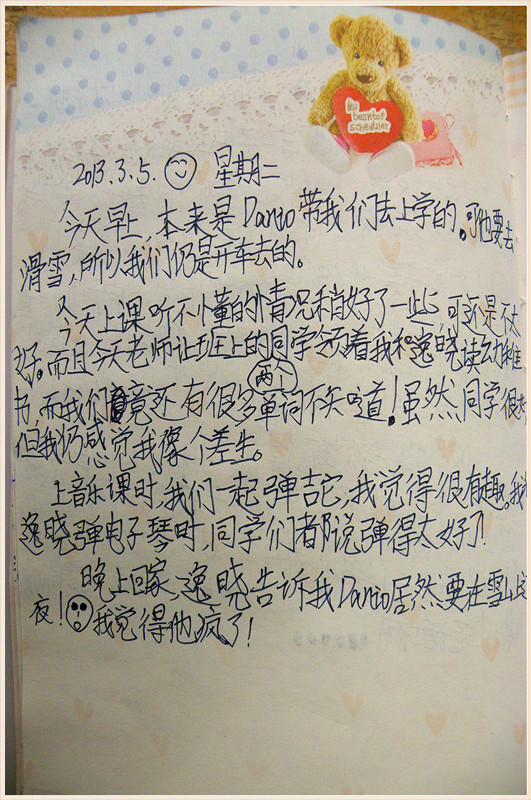 My
desktop
scheduler
2013.3.5. 星期二
今天早上,本来是Danto带我们去上学的。可他要去
滑雪,所以我们仍是开车去的。
今天上课听不懂的情况稍好了一些,可还是不太
好。而且今天老师让班上的同学领着我和逸晓读幼稚
书,而我们两个竟还有很多单词不知道!虽然同学很
但我仍感觉我像个差生。
上音乐课时,我们一起弹吉它,我觉得很有趣,我
逸晓弹电子琴时,同学们都说弹得太好了!
晚上回家,逸晓告诉我Danto居然要在雪山上
夜!我觉得他疯了!